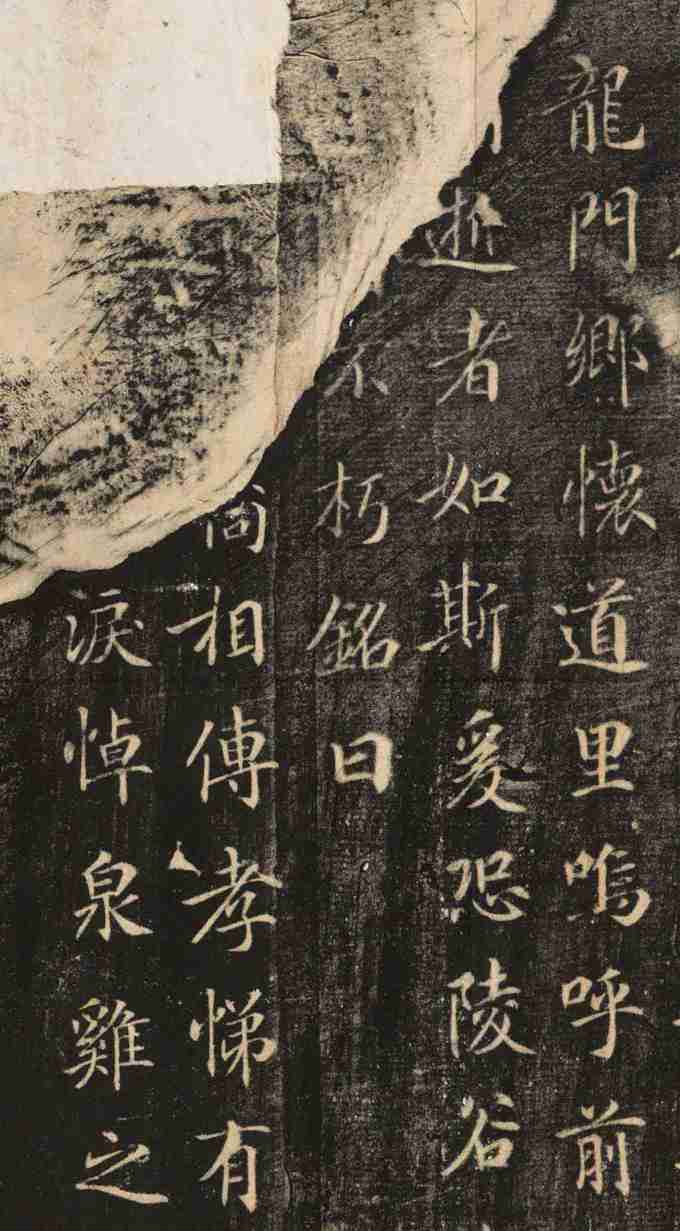 龍門鄉懷道里嗚呼前
逝者如斯爰恐陵谷
不朽銘曰
尚相傳孝悌有
淚悼泉雞之